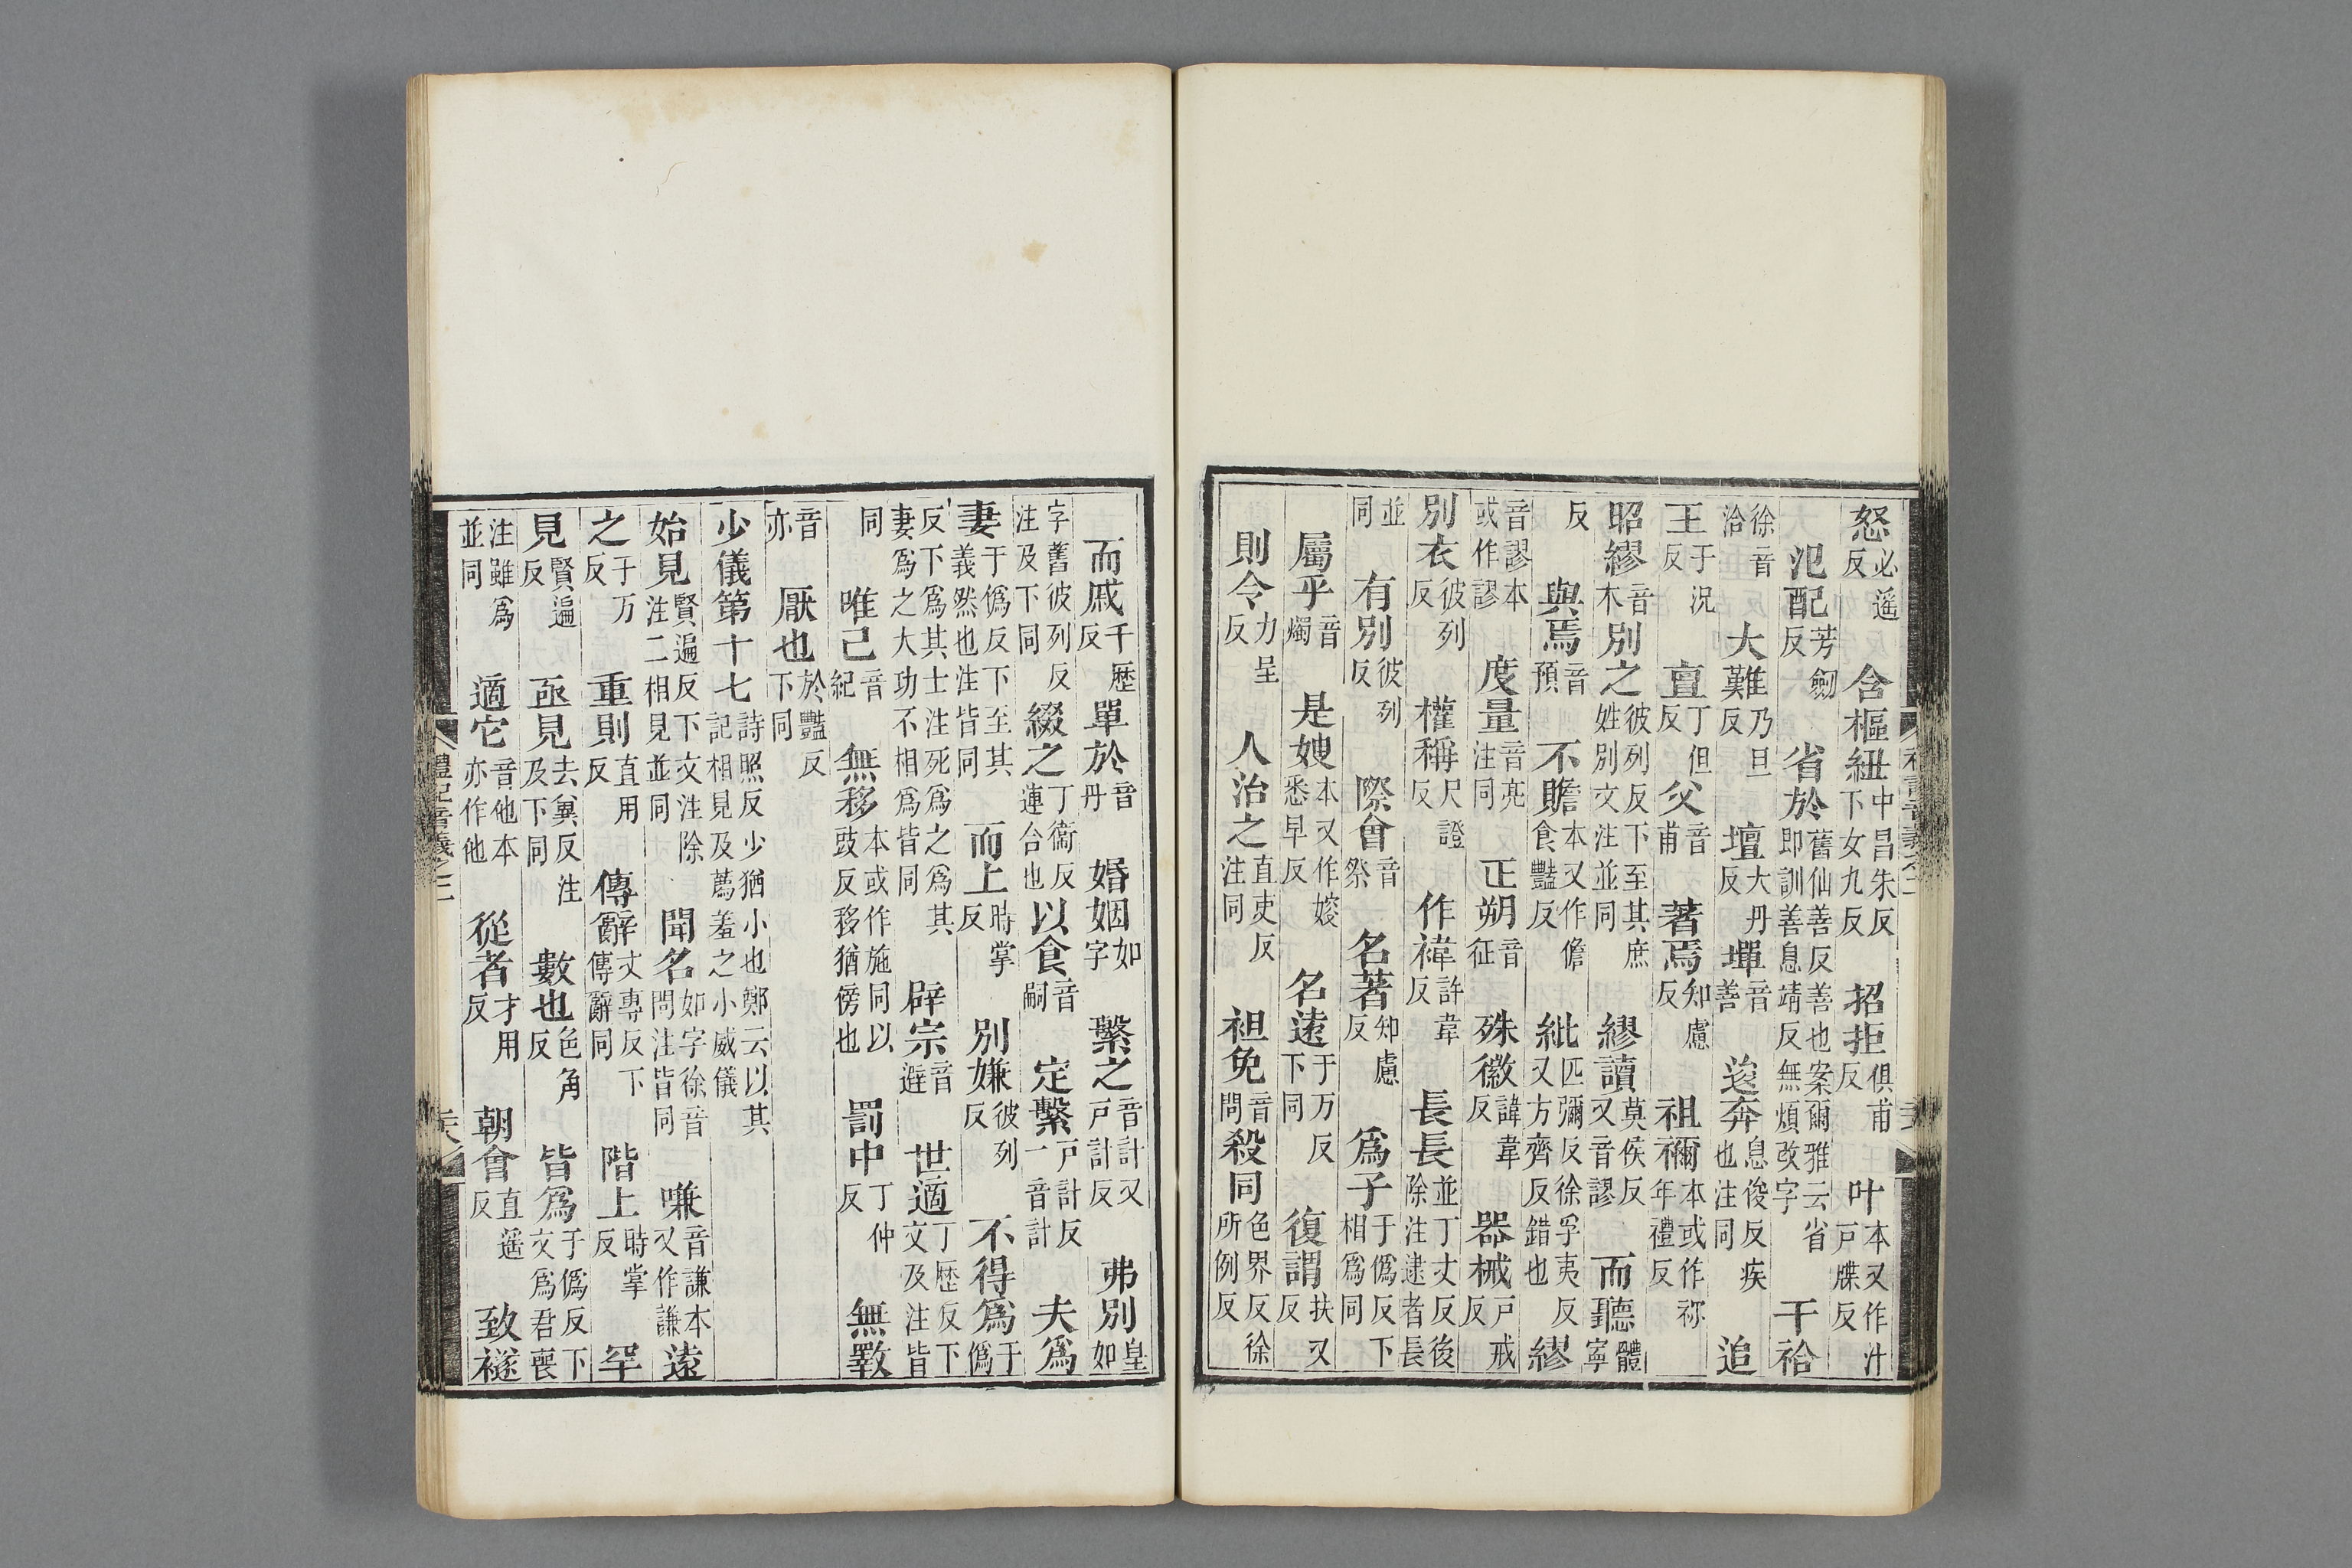 怒必遥反 含樞紐昌朱反中下女九反 招拒俱甫反 叶本又作汁戸牒反
氾配芳劒反 省於舊仙善反善也案爾雅云省即訓善息靖反無煩改字 干祫
徐音洽 大難乃旦反 壇大丹反 墠音善 逡奔息俊反疾也注同 追
王于況反 亶丁但反 父音甫 著焉知慮反 祖禰本或作祢年禮反
昭繆音木 別之彼列反下至其庶姓別文注並同 繆讀莫侯反又音謬 而聽體寧
反 與焉音預 不贍本又作儋食豔反 紕匹彌反徐孚夷反又方齊反錯也 繆
音謬本或作謬 度量音亮注同 正朔音征 殊徽諱韋反 器械戸戒反
別衣彼列反 權稱尺證反 作褘許韋反 長長並丁丈反後除注逮者長
並同 有別彼列反 際會音祭 名著知慮反 爲子于僞反下相爲同
屬乎音燭 是嫂本又作㛮悉早反 名遠于万反下同 復謂扶又反
則令力呈反 人治之直吏反注同 袒免音問 殺同色界反徐所例反
而戚千歷反 單於音丹 婚姻如字 繫之音計又戸計反 弗別皇如
字舊彼列反注及下同 綴之丁衞反連合也 以食音嗣 定繫戸計反一音計 夫爲
妻于僞反下至其義然也注皆同 而上時掌反 別嫌彼列反 不得爲于僞
反下爲其士注死爲之爲其妻爲之大功不相爲皆同 辟宗音避 世適丁歷反下文及注皆
同 唯己音紀 無移本或作施同以豉反移猶傍也 罰中丁仲反 無斁
音亦 厭也於豔反下同
少儀第十七詩照反少猶小也鄭云以其記相見及薦羞之小威儀
始見賢遍反下文注除注二相見並同 聞名如字徐音問注皆同 嗛音謙本又作謙 遠
之于万反 重則直用反 傳辭丈專反下傳辭同 階上時掌反 罕
見賢遍反 亟見去兾反注及下同 數也色角反 皆爲于僞反下文爲君喪
注雖爲並同 適它音他本亦作他 從者才用反 朝會直遥反 致襚
禮記音義之三